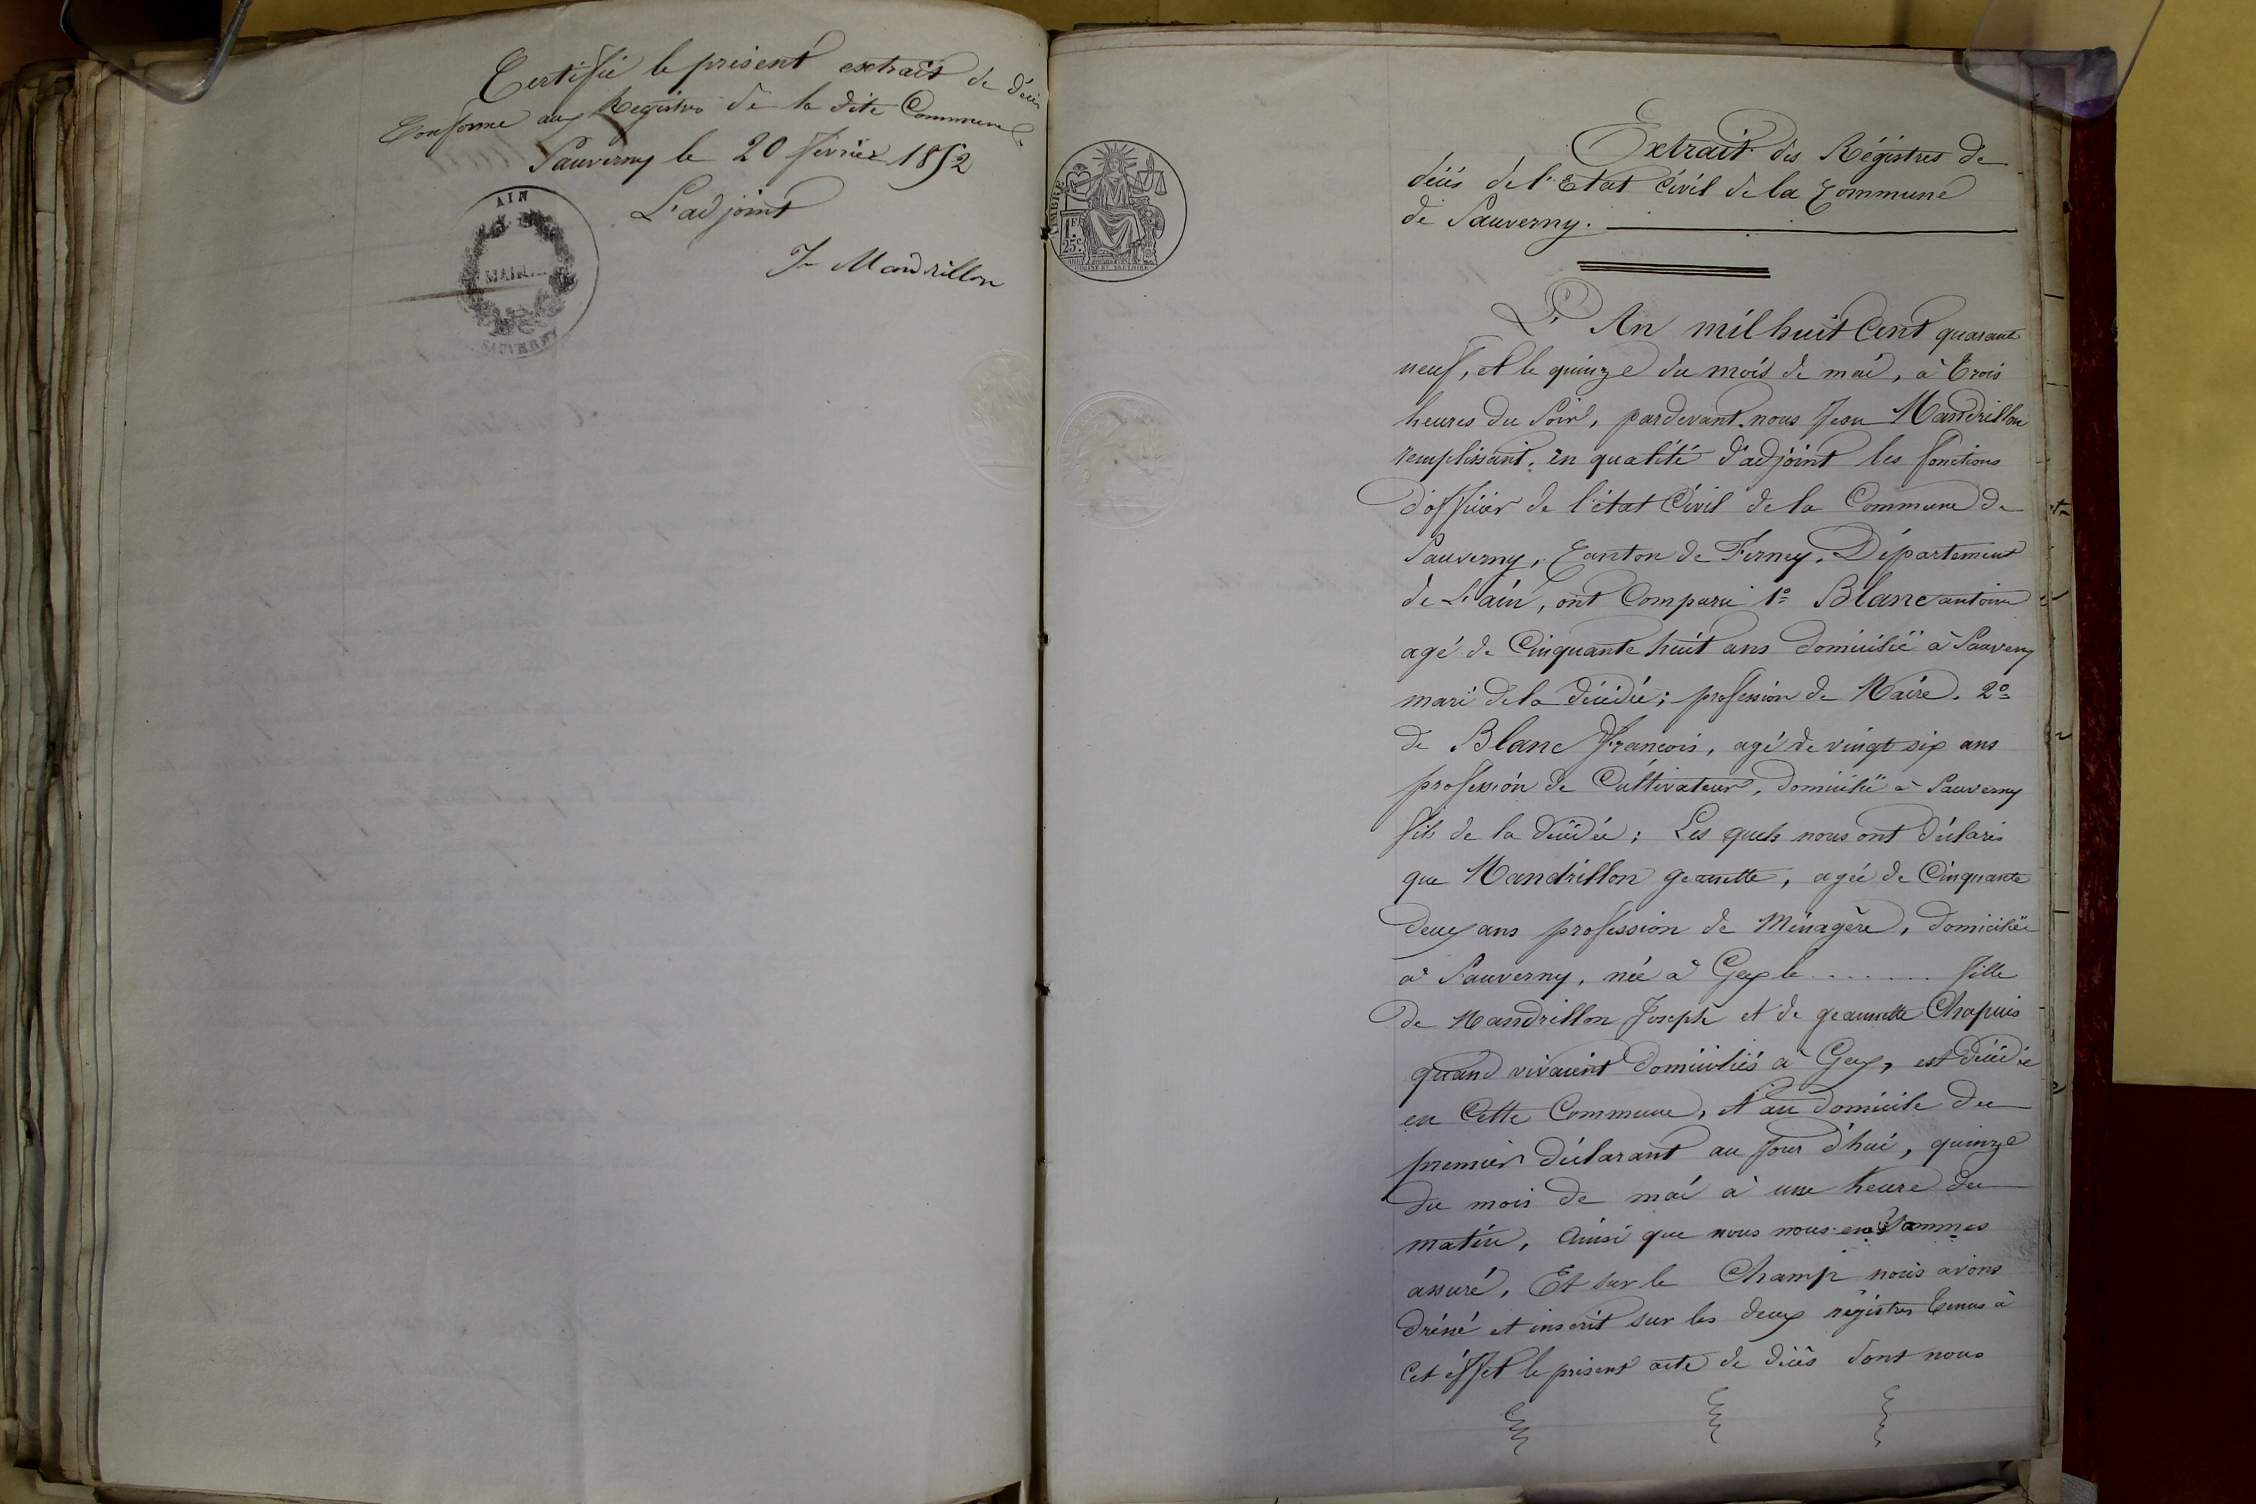 Certifié le présent extrait de décès
Conforme aux Registres de la dite Commune
Sauverny le 20 février 1852
L'adjoint
Jn Mandrillon
AIN
MAIRIE
SAUVERNY
TIMBRE
1F.
25c.
Extrait des Régistres de
décès de l'Etat Civil de la Commune
de Sauverny.
L'An mil huit Cent quarante
neuf, et le quinze du mois de mai, à trois
heures du Soir, pardevant nous Jean Mandrillon
remplissant, en qualité d'adjoint les fonctions
d'officier de l'état Civil de la Commune de
Sauverny, Canton de Ferney, Département
de L'ain, ont Comparu 1º Blanc antoine
agé de Cinquante huit ans domicilié à Sauverny
mari de la décédée; profession de Maire. 2º
de Blanc François, agé de vingt six ans
profession de Cultivateur, domicilié à Sauverny
fils de la décédée; Les quels nous ont déclarés
que Mandrillon geannette, agée de Cinquante
deux ans profession de Ménagère, domiciliée
à Sauverny, née à Gex le ........ fille
de Mandrillon Joseph et de geannette Chapuis
quand vivaient domiciliés à Gex, est décédée
en Cette Commune, et au domicile du
premier déclarant au jour d'hui, quinze
du mois de mai à une heure du
matin, Ainsi que nous nous en sommes
assuré, Et sur le Champ nous avons
dréné et inscrit sur les deux régistres tenus à
Cet éffet le présent acte de décès dont nous